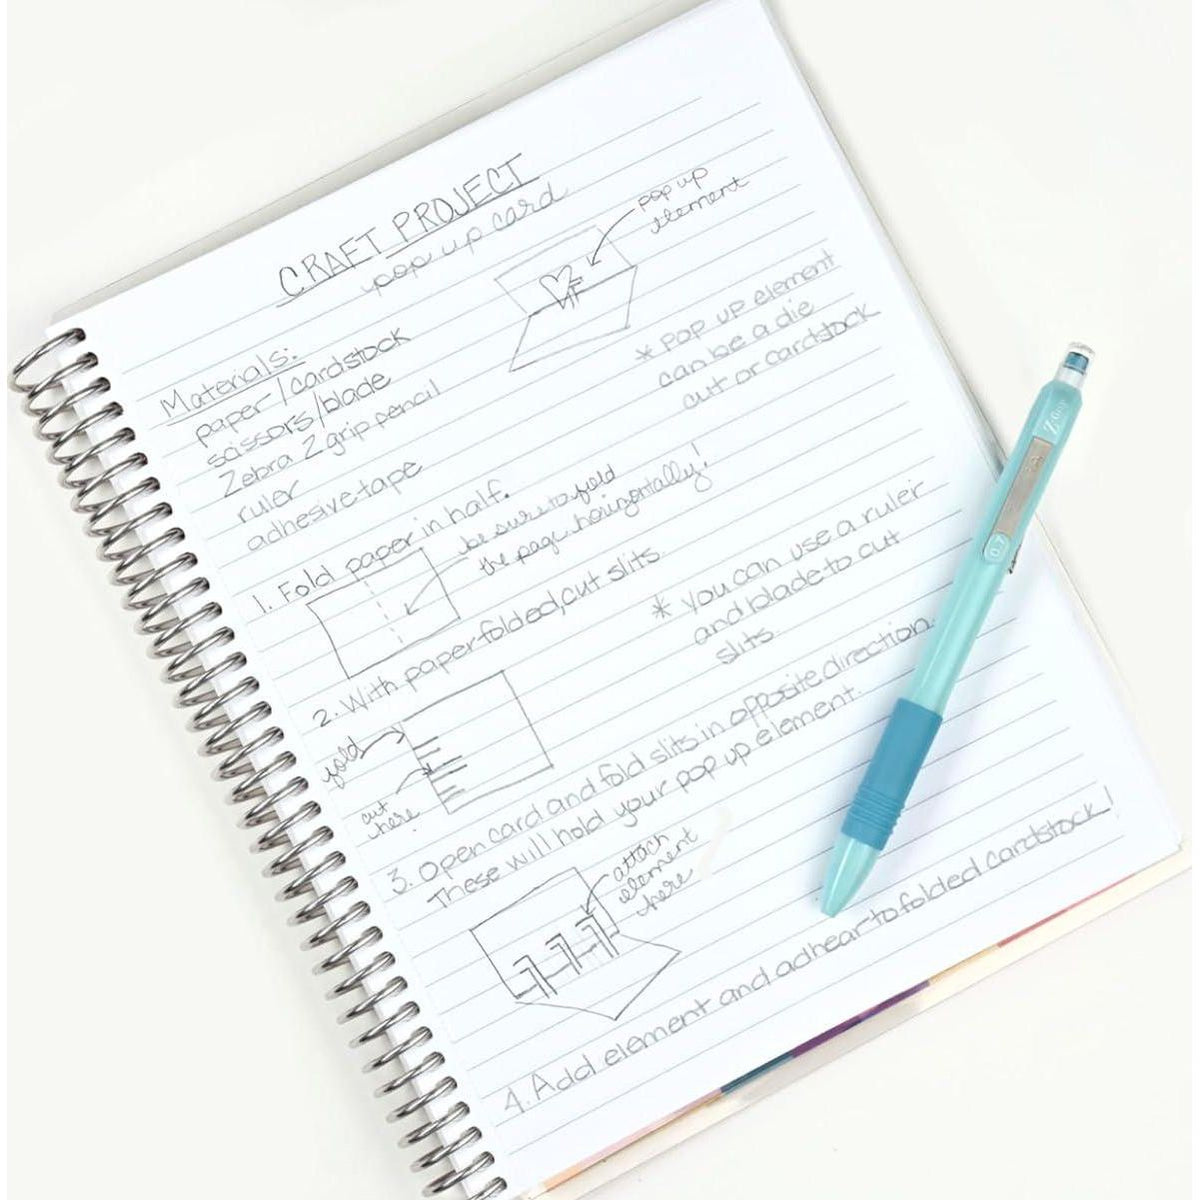 CRAFT PROJECT
pop up card
pop up
element
Materials:
paper/cardstock
scissors/blade
Zebra Z grip pencil
ruler
adhesive tape
* pop up element
can be a die
cut or cardstock
1. Fold paper in half.
be sure to fold
the page horizontally!
2. With paper folded, cut slits.
* you can use a ruler
and blade to cut
slits.
fold
cut
here.
3. Open card and fold slits in opposite direction.
These will hold your pop up element.
attach
element
here
4. Add element and adhear to folded cardstock!
Z
0.7